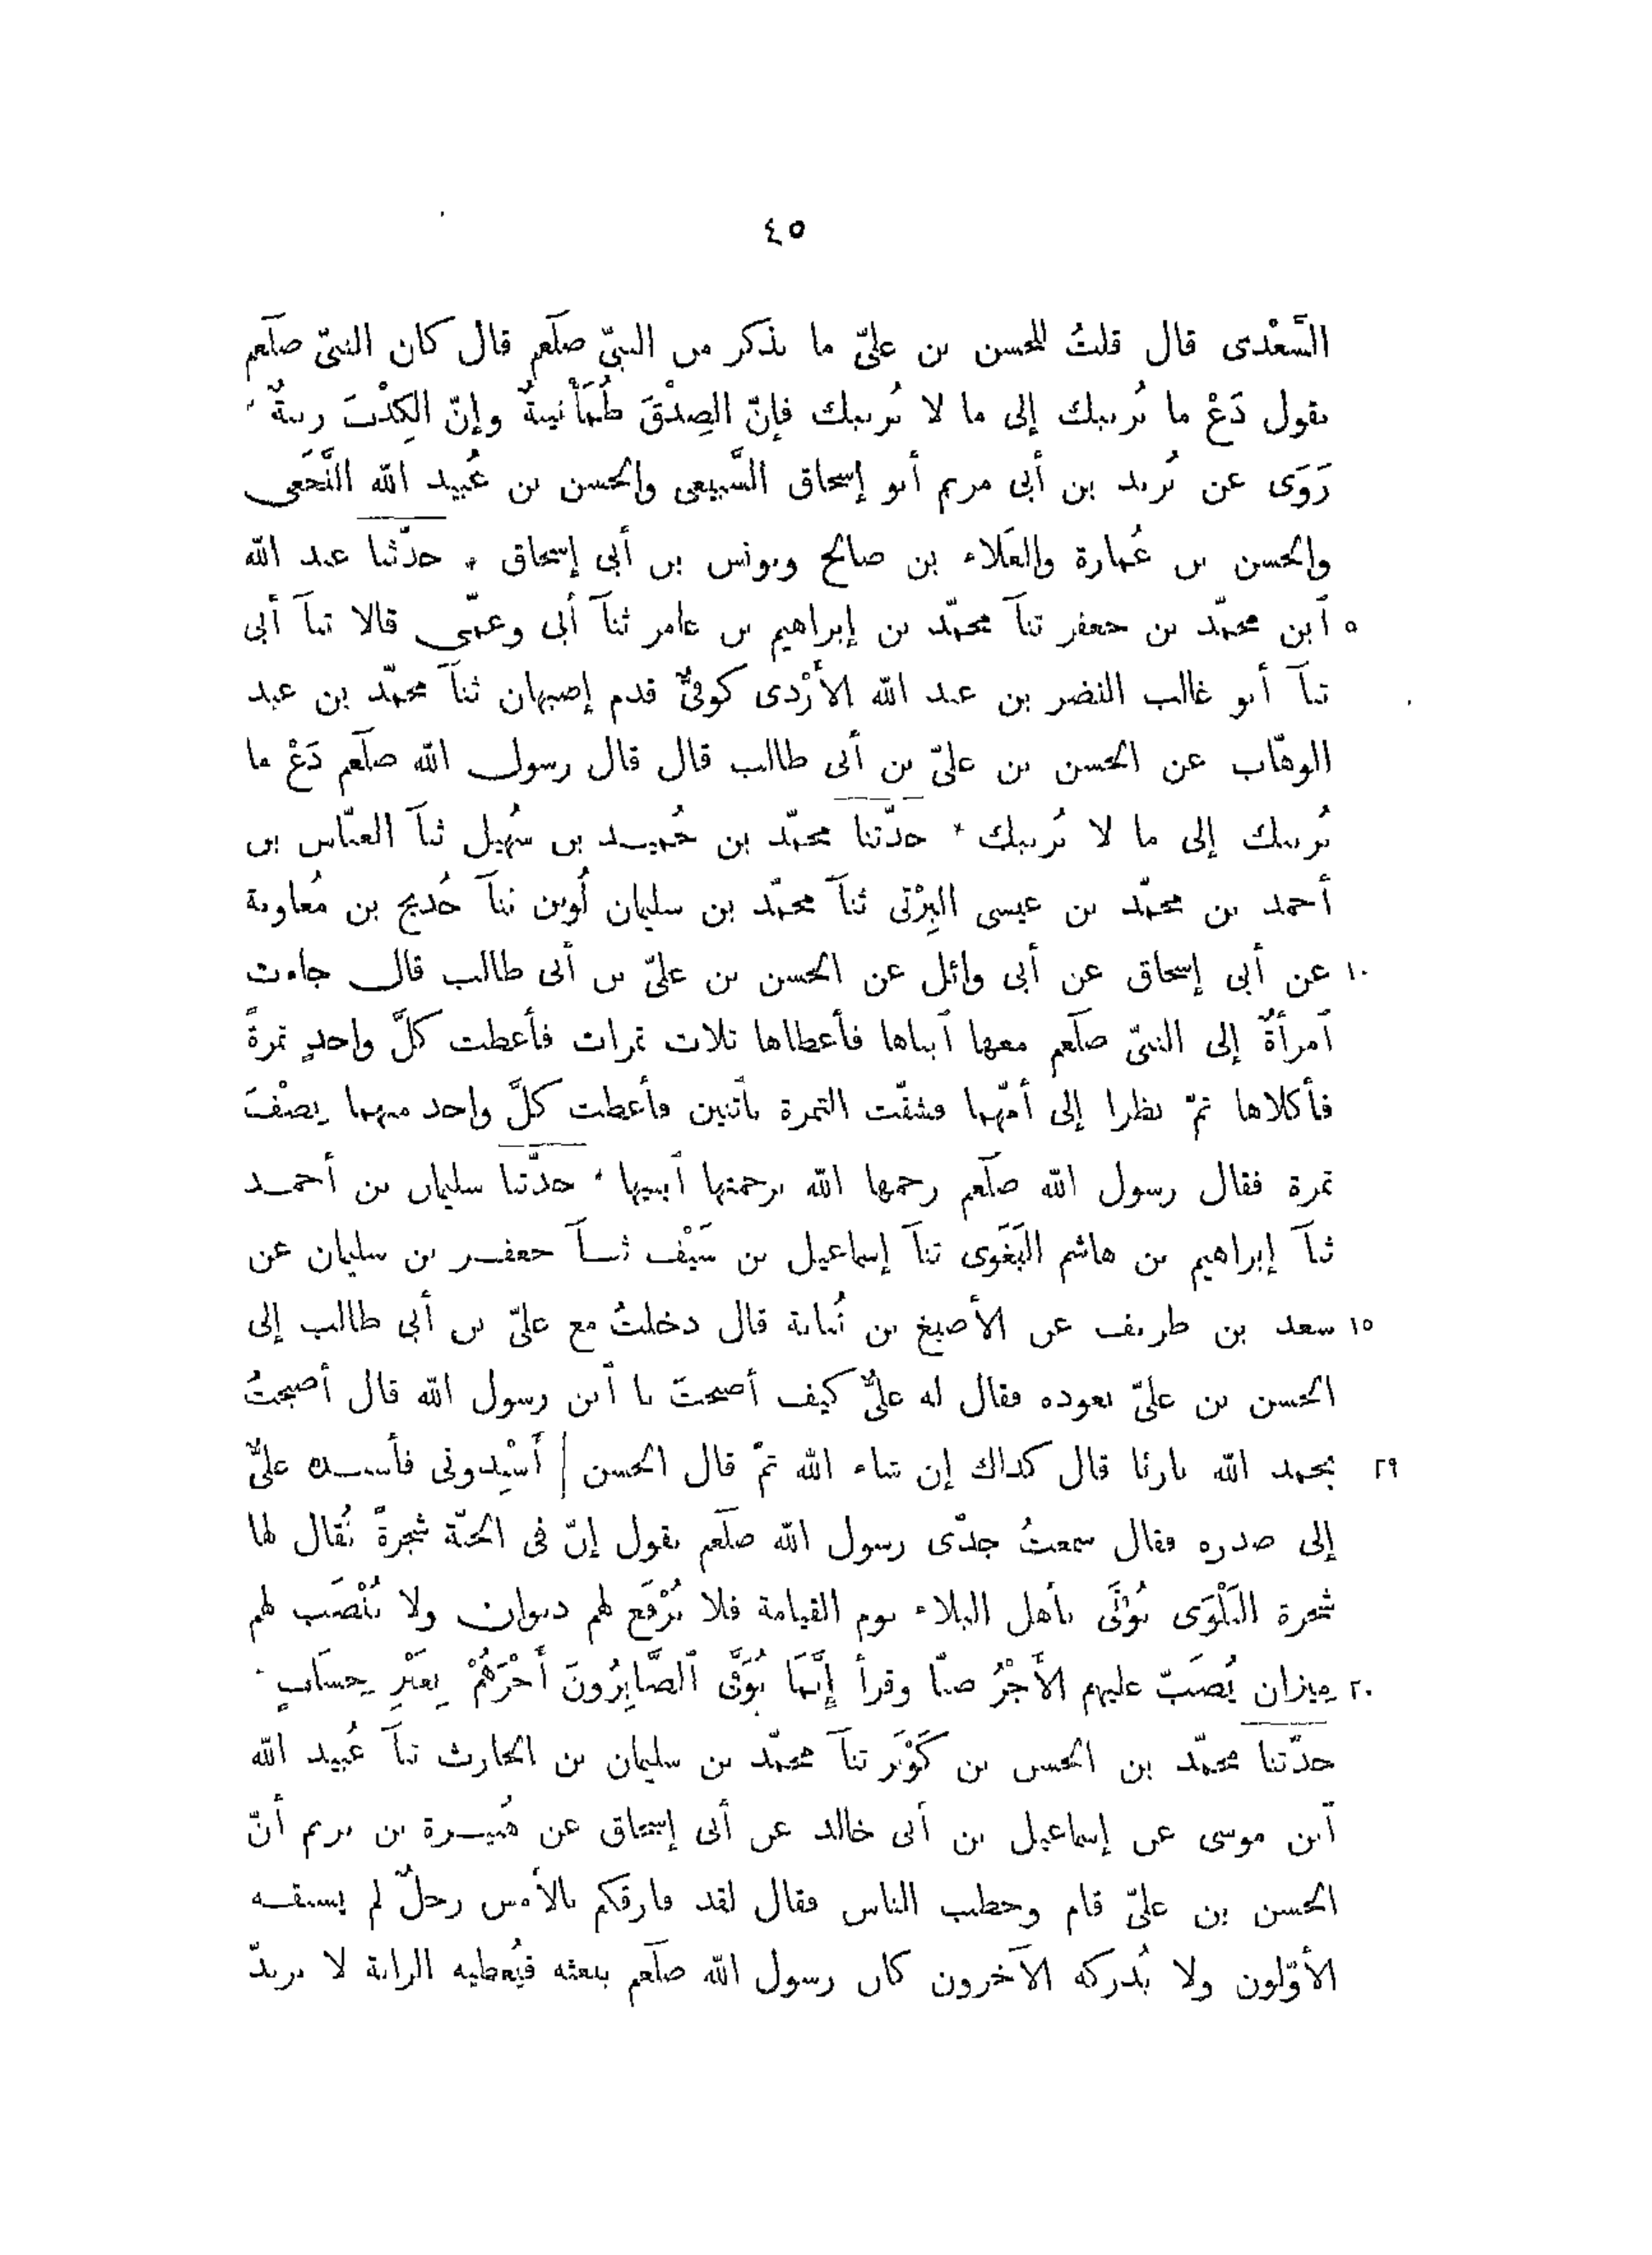 ٤٥
السَّعْدى قال قلتُ للحسن بن علىّ ما يذكر من النبىّ صلّعم قال كان النبىّ صلّعم
يقول دَعْ ما يُريبك إلى ما لا يُريبك فإنّ الصِدْقَ طُمَأْنينةٌ وإنّ الكِذْبَ ريبةٌ *
رَوَى عن بُريد بن أبى مريم أبو إسحاق السَّبيعى والحسن بن عُبيد الله النَّخَعى
والحسن بن عُمارة والعَلاء بن صالح ويونس بن أبى إسحاق * حدّثنا عبد الله
٥ ٱبن محمّد بن جعفر ثنآ محمّد بن إبراهيم بن عامر ثنآ أبى وعمّى قالا ثنآ أبى
ثنآ أبو غالب النضر بن عبد الله الأزْدى كوفىٌّ قدم إصبهان ثنآ محمّد بن عبد
الوهّاب عن الحسن بن علىّ بن أبى طالب قال قال رسول الله صلّعم دَعْ ما
يُريبك إلى ما لا يُريبك * حدّثنا محمّد بن حُميد بن سُهيل ثنآ العبّاس بن
أحمد بن محمّد بن عيسى البِرْتى ثنآ محمّد بن سليمان لُوين ثنآ حُديج بن مُعاوية
١٠ عن أبى إسحاق عن أبى وائل عن الحسن بن علىّ بن أبى طالب قال جاءت
ٱمرأةٌ إلى النبىّ صلّعم معها ٱبناها فأعطاها ثلاث تمرات فأعطت كلَّ واحدٍ تمرةً
فأكلاها ثمّ نظرا إلى أمّهما فشقّت التمرة بٱثنين فأعطت كلَّ واحد منهما نِصْفَ
تمرة فقال رسول الله صلّعم رحمها الله برحمتها ٱبنيها * حدّثنا سليمان بن أحمد
ثنآ إبراهيم بن هاشم البَغَوى ثنآ إسماعيل بن سَيْف ثنآ جعفر بن سليمان عن
١٥ سعد بن طريف عن الأصبغ بن نُباتة قال دخلتُ مع علىّ بن أبى طالب إلى
الحسن بن علىّ نعوده فقال له علىٌّ كيف أصبحتَ يا ٱبن رسول الله قال أصبحتُ
٢٩ بحمد الله بارئا قال كذاك إن شاء الله ثمّ قال الحسن | أَسْنِدونى فأسنده علىٌّ
إلى صدره فقال سمعتُ جدّى رسول الله صلّعم يقول إنّ فى الجنّة شجرةً يُقال لها
شجرة البَلْوَى يُؤْتَى بأهل البلاء يوم القيامة فلا يُرْفَع لهم ديوان ولا يُنْصَب لهم
٢٠ ميزان يُصَبّ عليهم الأَجْرُ صبّا وقرأ إِنَّمَا يُوَفَّى ٱلصَّابِرُونَ أَجْرَهُمْ بِغَيْرِ حِسَابٍ *
حدّثنا محمّد بن الحسن بن كَوْثَر ثنآ محمّد بن سليمان بن الحارث ثنآ عُبيد الله
ٱبن موسى عن إسماعيل بن أبى خالد عن أبى إسحاق عن هُبيرة بن يريم أنّ
الحسن بن علىّ قام وخطب الناس فقال لقد فارقكم بالأمس رجلٌ لم يسبقه
الأوّلون ولا يُدركه الآخرون كان رسول الله صلّعم يبعثه فيُعطيه الراية لا يردّ